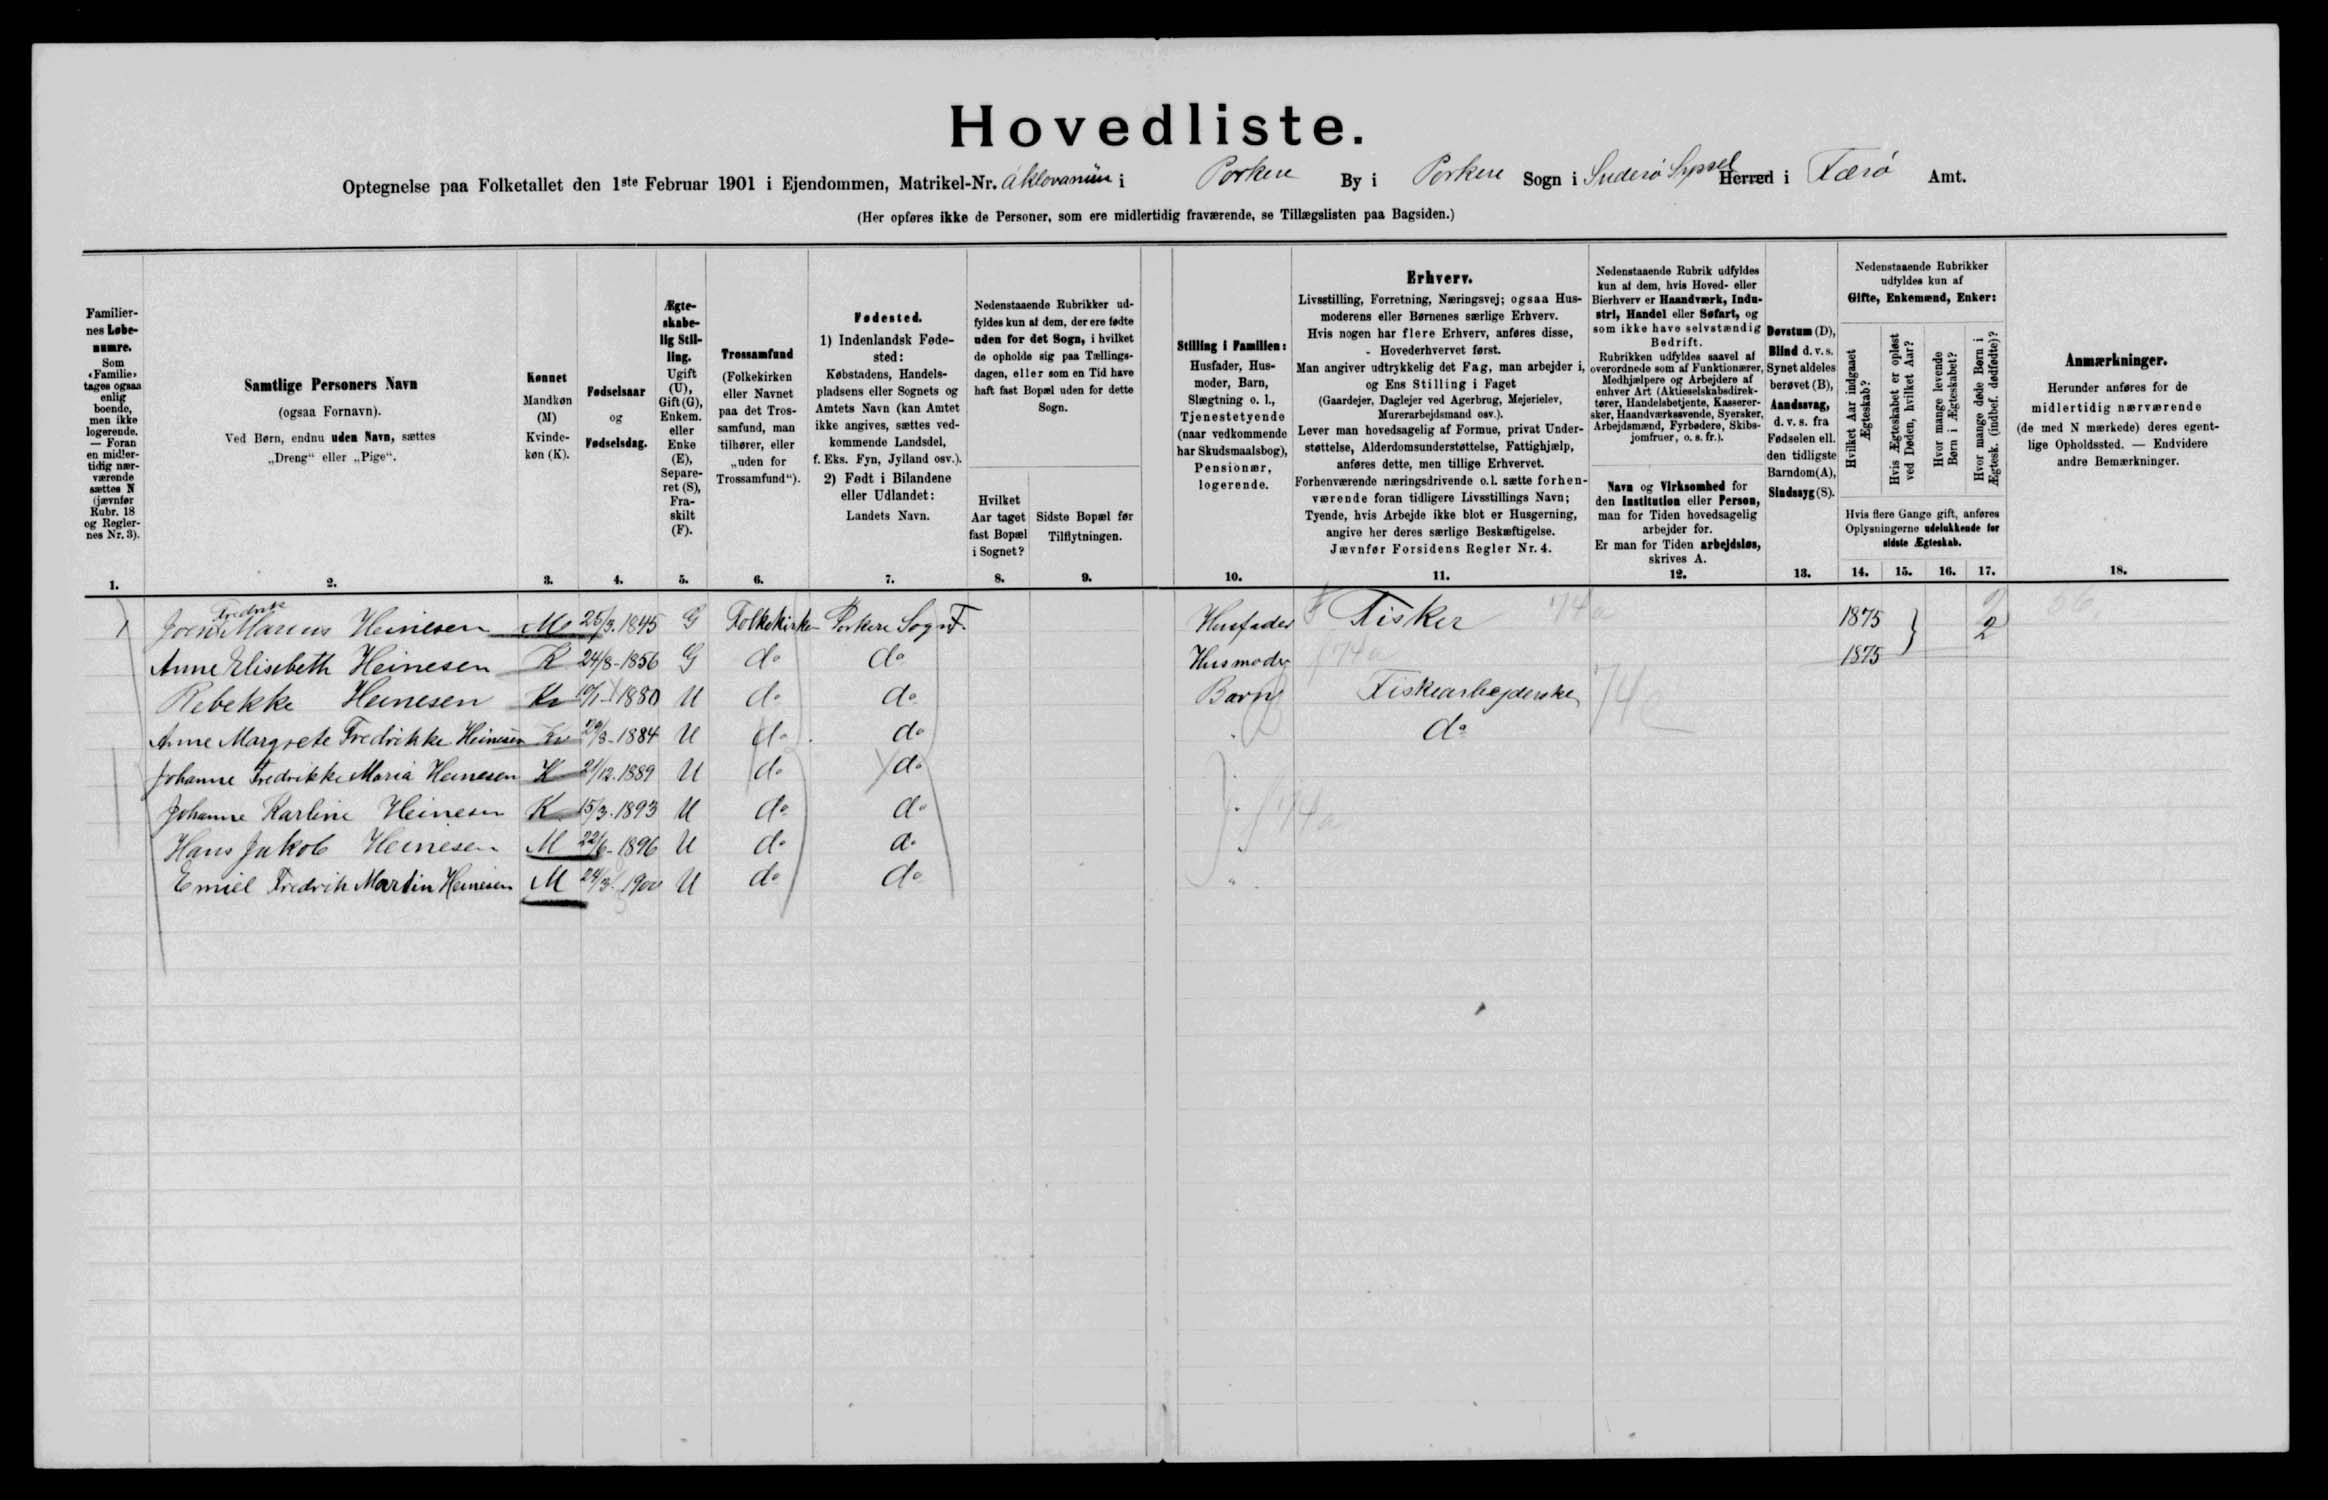 Hovedliste.
Optegnelse paa Folketallet den 1ste Februar 1901 i Ejendommen, Matrikel-Nr. i Porkere By i Porkere Sogn i Suderø Syssel Herred i Færø Amt.
(Her opføres ikke de Personer, som ere midlertidig fraværende, se Tillægslisten paa Bagsiden.)
Familier-
nes Løbe-
numre.
Som
«Familie»
tages ogsaa
enlig
boende,
men ikke
logerende.
— Foran
en midler-
tidig nær-
værende
sættes N
(jævnfør
Rubr. 18
og Regler-
nes Nr. 3).
1.
Samtlige Personers Navn
(ogsaa Fornavn).
Ved Børn, endnu uden Navn, sættes
„Dreng“ eller „Pige“.
2.
Kønnet
Mandkøn
(M)
Kvinde-
køn (K).
3.
Fødselsaar
og
Fødselsdag.
4.
Ægte-
skabe-
lig Stil-
ling.
Ugift
(U),
Gift (G),
Enkem.
eller
Enke
(E),
Separe-
ret (S),
Fra-
skilt
(F).
5.
Trossamfund
(Folkekirken
eller Navnet
paa det Tros-
samfund, man
tilhører, eller
„uden for
Trossamfund“).
6.
Fødested.
1) Indenlandsk Føde-
sted:
Købstadens, Handels-
pladsens eller Sognets og
Amtets Navn (kan Amtet
ikke angives, sættes ved-
kommende Landsdel,
f. Eks. Fyn, Jylland osv.).
2) Født i Bilandene
eller Udlandet:
Landets Navn.
7.
Nedenstaaende Rubrikker ud-
fyldes kun af dem, der ere fødte
uden for det Sogn, i hvilket
de opholde sig paa Tællings-
dagen, eller som en Tid have
haft fast Bopæl uden for dette
Sogn.
Hvilket
Aar taget
fast Bopæl
i Sognet?
8.
Sidste Bopæl før
Tilflytningen.
9.
Stilling i Familien:
Husfader, Hus-
moder, Barn,
Slægtning o. l.,
Tjenestetyende
(naar vedkommende
har Skudsmaalsbog),
Pensionær,
logerende.
10.
Erhverv.
Livsstilling, Forretning, Næringsvej; ogsaa Hus-
moderens eller Børnenes særlige Erhverv.
Hvis nogen har flere Erhverv, anføres disse,
- Hovederhvervet først.
Man angiver udtrykkelig det Fag, man arbejder i,
og Ens Stilling i Faget
(Gaardejer, Daglejer ved Agerbrug, Mejerielev,
Murerarbejdsmand osv.).
Lever man hovedsagelig af Formue, privat Under-
støttelse, Alderdomsunderstøttelse, Fattighjælp,
anføres dette, men tillige Erhvervet.
Forhenværende næringsdrivende o.l. sætte forhen-
værende foran tidligere Livsstillings Navn;
Tyende, hvis Arbejde ikke blot er Husgerning,
angive her deres særlige Beskæftigelse.
Jævnfør Forsidens Regler Nr. 4.
11.
Nedenstaaende Rubrik udfyldes
kun af dem, hvis Hoved- eller
Bierhverv er Haandværk, Indu-
stri, Handel eller Søfart, og
som ikke have selvstændig
Bedrift.
Rubrikken udfyldes saavel af
overordnede som af Funktionærer,
Medhjælpere og Arbejdere af
enhver Art (Aktieselskabsdirek-
tører, Handelsbetjente, Kasserer-
sker, Haandværkssvende, Syersker,
Arbejdsmænd, Fyrbødere, Skibs-
jomfruer, o. s. fr.).
Navn og Virksomhed for
den Institution eller Person,
man for Tiden hovedsagelig
arbejder for.
Er man for Tiden arbejdsløs,
skrives A.
12.
Døvstum (D),
Blind d. v. s.
Synet aldeles
berøvet (B),
Aandssvag,
d. v. s. fra
Fødselen ell.
den tidligste
Barndom (A),
Sindssyg (S).
13.
Nedenstaaende Rubrikker
udfyldes kun af
Gifte, Enkemænd, Enker:
Hvilket Aar indgaaet
Ægteskab?
Hvis Ægteskabet er opløst
ved Døden, hvilket Aar?
Hvor mange levende
Børn i Ægteskabet?
Hvor mange døde Børn i
Ægtesk. (indbef. dødfødte)?
Hvis flere Gange gift, anføres
Oplysningerne udelukkende for
sidste Ægteskab.
14. 15. 16. 17.
Anmærkninger.
Herunder anføres for de
midlertidig nærværende
(de med N mærkede) deres egent-
lige Opholdssted. — Endvidere
andre Bemærkninger.
18.
1 Fredrik Marius Heinesen M 25/3.1845 G Folkekirken Porkere Sogn F. Husfader Fisker 74a 1875 2
Anne Elisebeth Heinesen K 24/8-1856 G do do Husmoder 74a 1875
Rebekke Heinesen K 10/1-1880 U do do Barn Fiskearbejderske 74
Anne Margrete Fredrikke Heinesen 29/3-1884 U do do " do
Johanne Fredrikke Maria Heinesen K 21/12.1889 U do do "
Johanne Karline Heinesen K 15/3.1893 U do do " 74a
Hans Jakob Heinesen M 22/6-1896 U do do "
Emiel Fredrik Martin Heinesen M 24/3.1900 U do do "